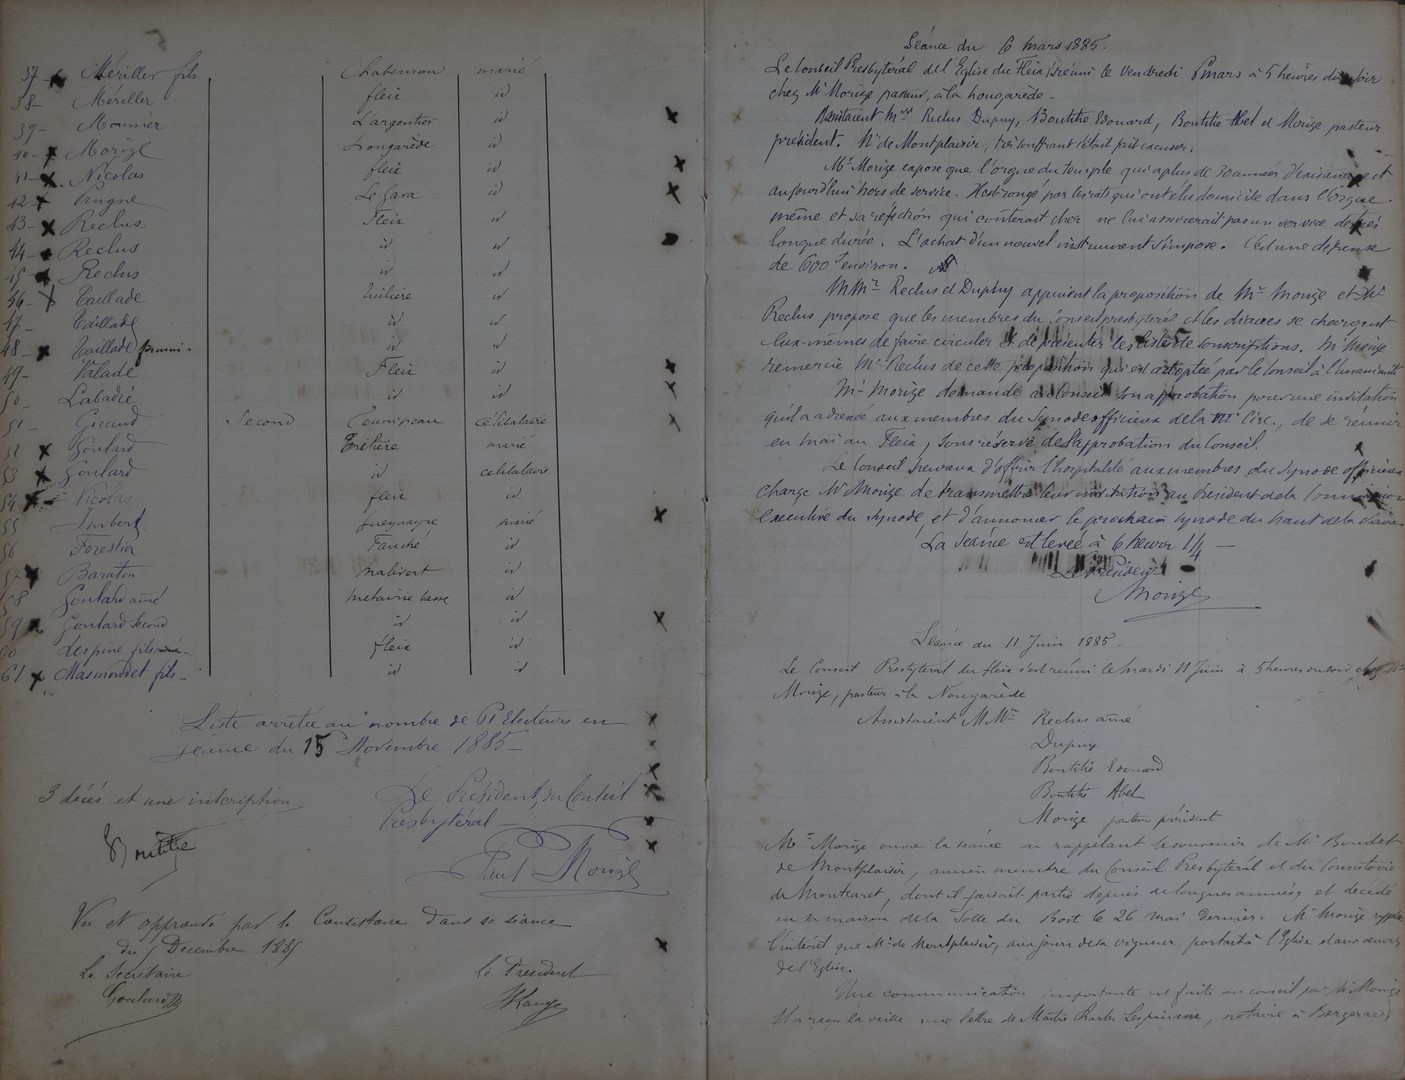 37 - Mériller fils Chabenson marié
38 - Mériller fleix id
39 - Mounier L'argentier id
40 - Morize Nongarède id
41 - Nicolas fleix id
42 - Pougne Le Gava id
43 - Reclus Fleix id
44 - Reclus id id
45 - Reclus id id
46 - Taillade Tuilière id
47 - Taillade id id
48 - Taillade id id
49 - Valade Fleix id
50 - Labadie id id
51 - Giraud Second célibataire
52 Goulard marié
53 Goulard id célibataire
54 - Nicolas fleix id
55 Imbert marié
56 Forestin Fauché id
57 Baraton id
58 Goulard aîné metairie basse id
59 Goulard second id id
60 Lespine fils fleix id
61 Masmondet fils - id id
Liste arretée au nombre de 61 Electeurs en
séance du 15 Novembre 1885 -
3 décés et une inscription
Le Président du Conseil
Presbytéral
Boutitie
Paul Morize
Vu et approuvé par le Consistoire dans sa séance
du Décembre 1885
Le Secretaire Le President
Séance du 6 mars 1885.
Le Conseil Presbytéral de l'Eglise du Fleix réuni le Vendredi 6 mars à 5 heures du soir
chez Mr Morize pasteur, à la Nongarède -
Assistaient Mrs Reclus Dupuy, Boutitie Edouard, Boutitie Abel et Morize pasteur
président. Mr de Montplaisir, très souffrant s'était fait excuser.
Mr Morize expose que l'orgue du temple qui a plus de 30 années d'existence est
aujourd'hui hors de service. Il est rongé par les rats qui ont élu domicile dans l'orgue
même et sa réfection qui coûterait cher ne lui assurerait pas un service de très
longue durée. L'achat d'un nouvel instrument s'impose. C'est une dépense
de 600 f environ.
MMrs Reclus et Dupuy appuient la proposition de Mr Morize et Mr
Reclus propose que les membres du Conseil presbytéral et les diacres se chargent
Eux-mêmes de faire circuler et de présenter les listes de souscriptions. Mr Morize
remercie Mr Reclus de cette proposition qui est adoptée par le Conseil à l'unanimité
Mr Morize demande au Conseil son approbation pour une invitation
qu'il a adressée aux membres du Synode officieux de la Circ., de se réunir
en mai au Fleix, sous réserve de l'approbation du Conseil.
Le Conseil heureux d'offrir l'hospitalité aux membres du Synode officieux
charge Mr Morize de transmettre leur invitation au Président de la Commission
exécutive du Synode et d'annoncer le prochain Synode du haut de la
La séance est levée à 6 heures 1/4 -
Le Président
Morize
Séance du 11 Juin 1885.
Le Conseil Presbytéral du fleix s'est réuni le mardi 11 Juin à 5 heures du soir chez Mr
Morize, pasteur à la Nongarède
Assistaient MMrs Reclus aîné
Dupuy
Boutitie Edouard
Boutitie Abel
Morize pasteur président
Mr Morize ouvre la séance en rappelant le souvenir de Mr Boudet
de Montplaisir, ancien membre du Conseil Presbytéral et du Consistoire
de Montcaret, dont il faisait partie depuis de longues années, et décédé
en sa maison de la Salle du Bost le 26 mai dernier. Mr Morize rappelle
l'intérêt que Mr de Montplaisir, aux jours de sa vigueur, portait à l'Eglise et aux œuvres
de l'Eglise.
Une communication importante est faite au conseil par Mr Morize
Il a reçu la veille une lettre de Maître Charles Lespinasse, notaire à Bergerac,